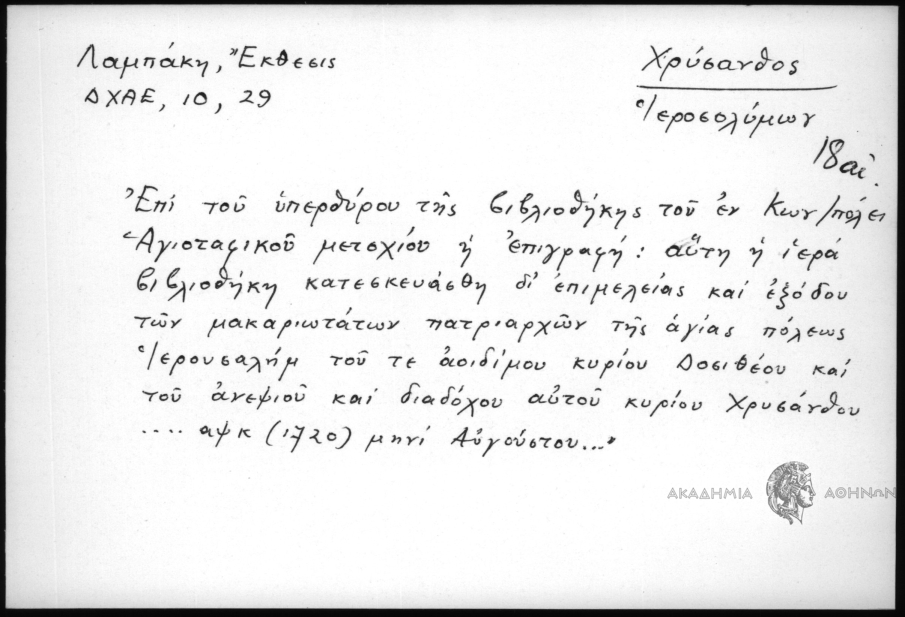 Λαμπάκη, Ἔκθεσις
ΔΧΑΕ, 10, 29
Χρύσανθος
Ἱεροσολύμων
18 αἰ.
Ἐπί τοῦ ὑπερθύρου τῆς βιβλιοθήκης τοῦ ἐν Κων/πόλει
Ἁγιοταφικοῦ μετοχίου ἡ ἐπιγραφή: αὕτη ἡ ἱερά
βιβλιοθήκη κατεσκευάσθη δι' ἐπιμελείας καί ἐξόδου
τῶν μακαριωτάτων πατριαρχῶν τῆς ἁγίας πόλεως
Ἱερουσαλήμ τοῦ τε ἀοιδίμου κυρίου Δοσιθέου καί
τοῦ ἀνεψιοῦ καί διαδόχου αὐτοῦ κυρίου Χρυσάνθου
.... αψκ (1720) μηνί Αὐγούστου..."
ΑΚΑΔΗΜΙΑ ΑΘΗΝΩΝ